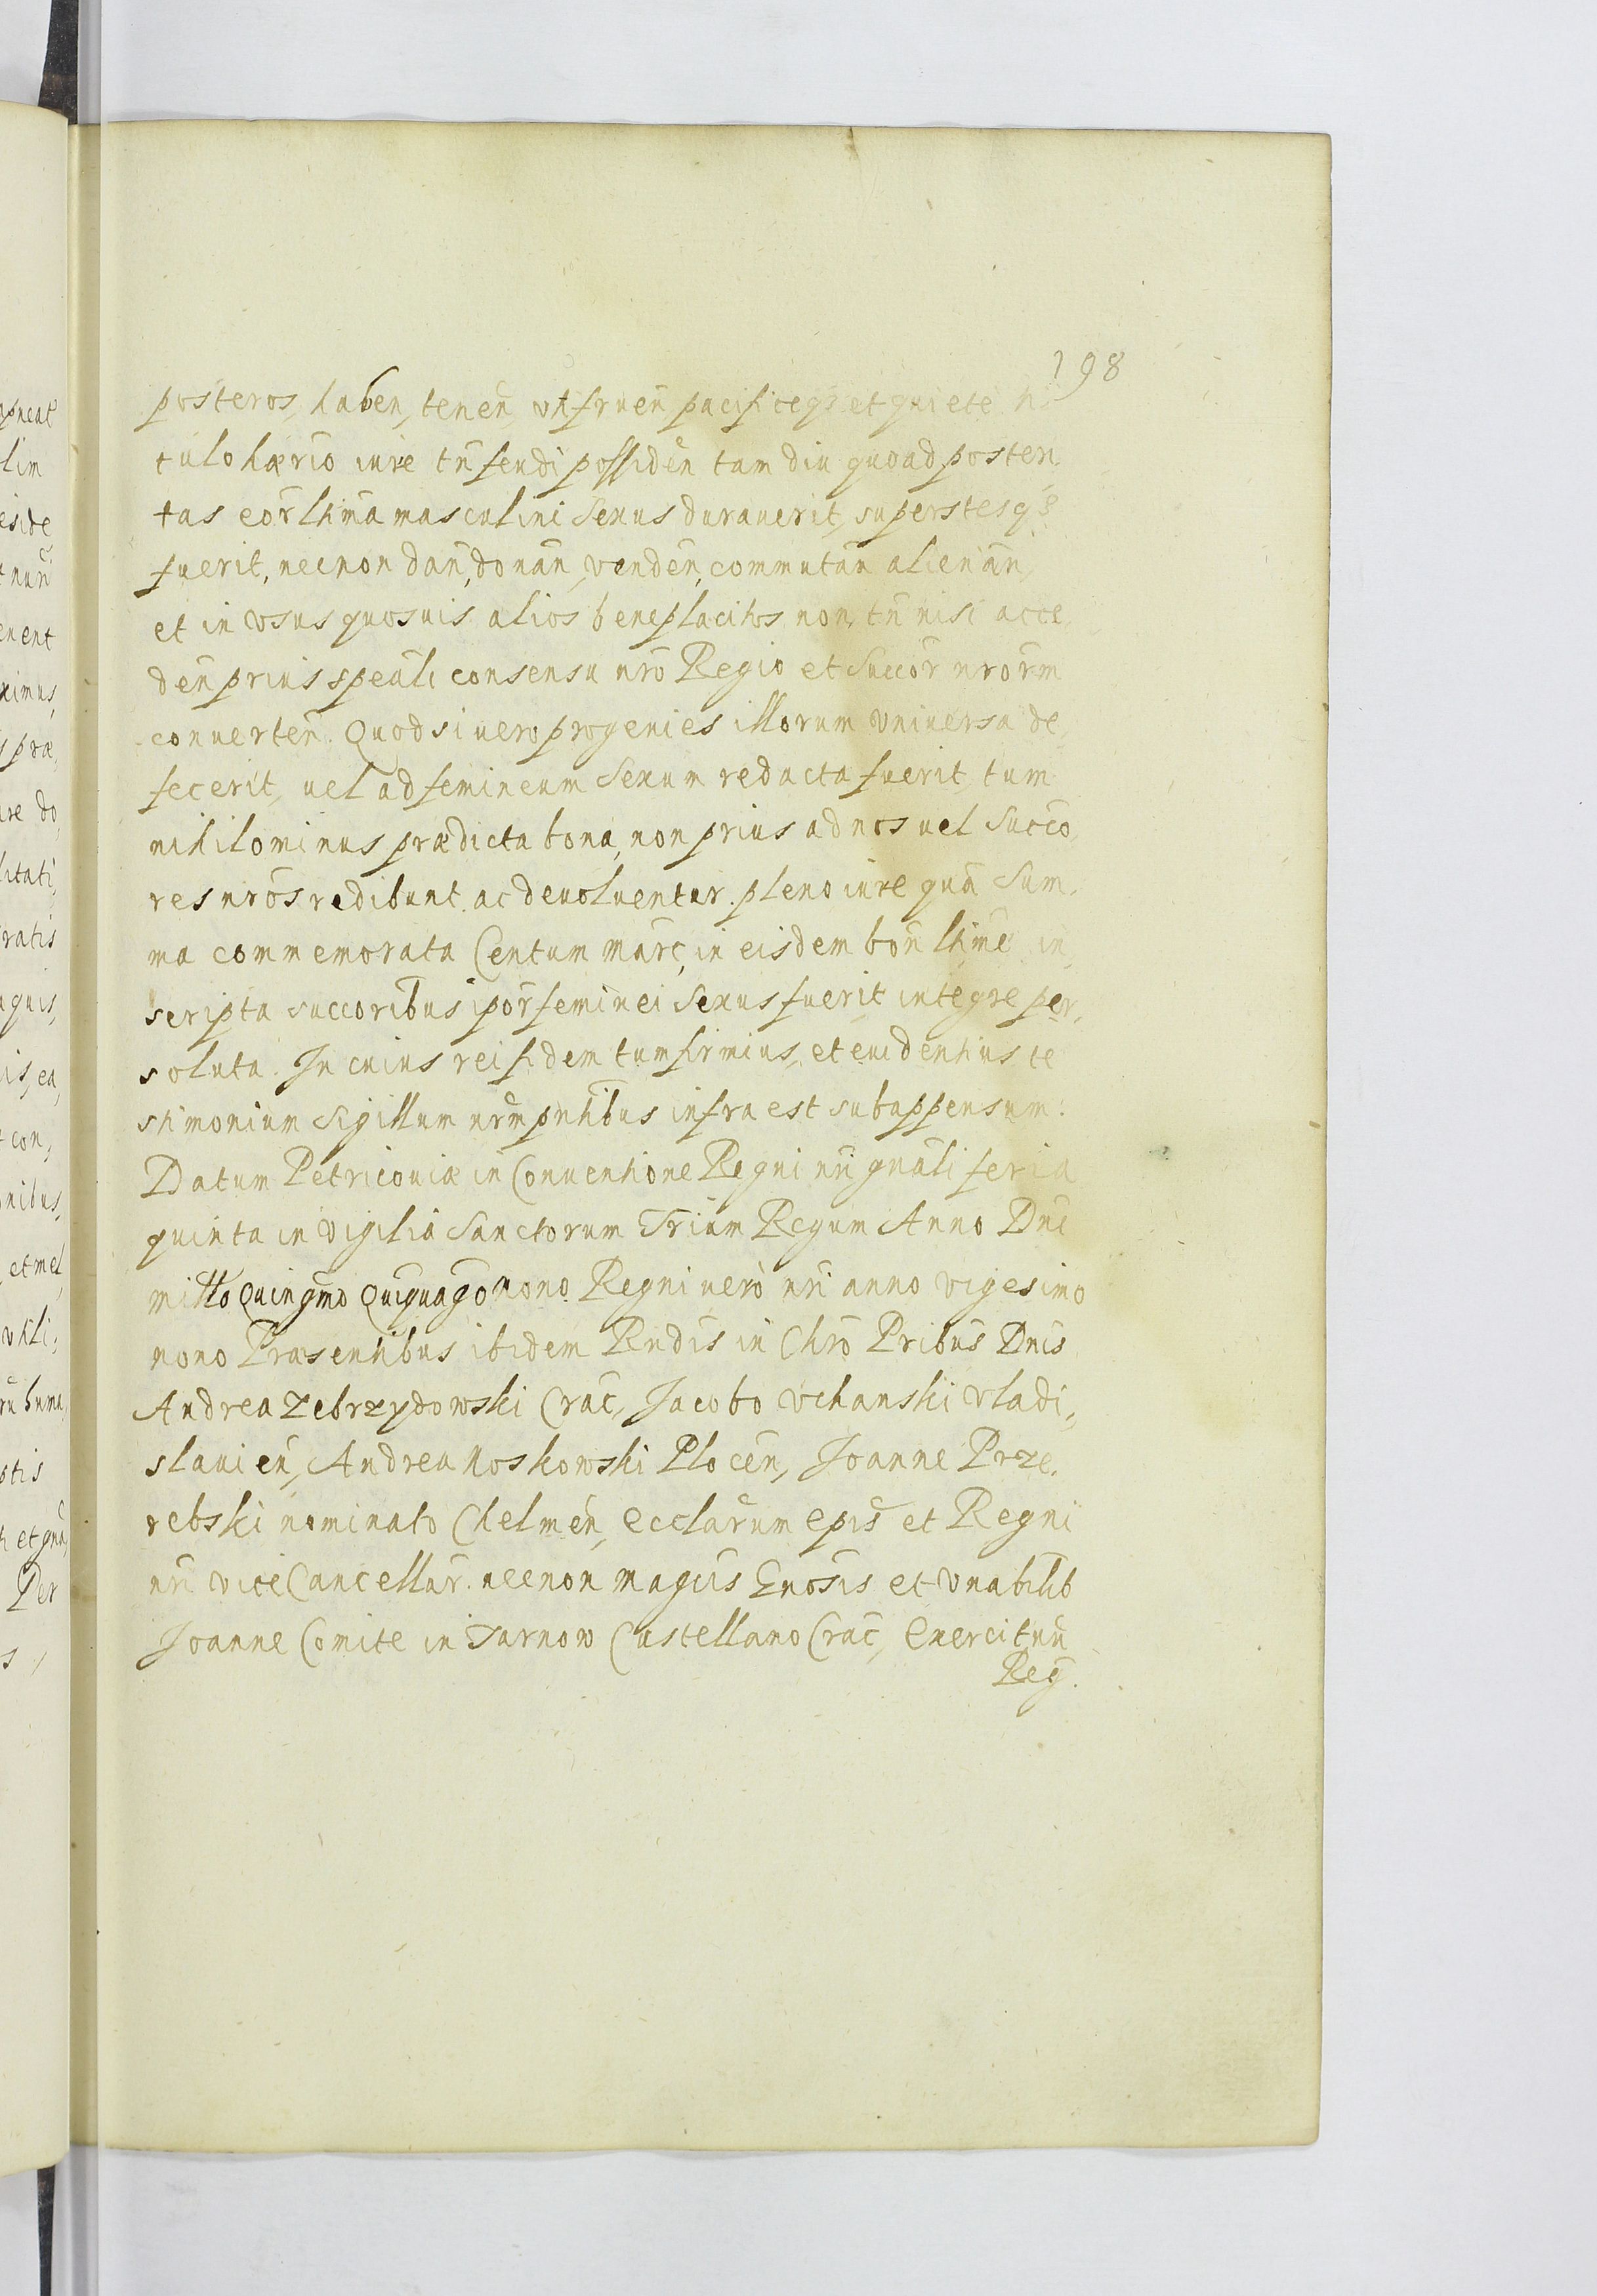 198
posteros, haben, tenen̄, utifruen̄, pacificeq3 et quiete ti
tulo hærio iure tn̄ feudi possiden̄ tam diu quoad posteri
tas eor̄ lhīma masculini Sexus durauerit, superstesq3
fuerit, necnon dan̄, donan̄, venden̄, commutan̄ alienan̄,
et in vsus quosuis alios beneplacitos non tn̄ nisi acce
den̄ prius speāli consensu nr̄o Regio et Succor̄ nror̄m
conuerten̄. Quod si uero progenies illorum vniuersa de,
fecerit, uel ad femineum Sexum redacta fuerit, tum
nihilominus prædicta bona, non prius ad nos uel Succo,
res nr̄os redibunt ac deuoluentur pleno iure quā Sum,
ma commemorata Centum marc̄, in eisdem bon̄ lhīme in,
scripta succoribus ipor̄ feminei Sexus fuerit integre per,
soluta. In cuius rei fidem tum firmius, et euidentius te
stimonium Sigillum nr̄m pn̄tibus infra est subappensum:
Datum Petricouiæ in Conuentione Regni nr̄i gnāli feria
quinta in vigilia Sanctorum Trium Regum Anno Dnī
millo Quingmō Quīquagō nono Regni uero nr̄i anno vigesimo
nono Præsentibus ibidem Rndīs in Chrō Pribūs Dnīs
Andrea Zebrzydowski Crac̄, Jacobo Vchanski Vladi,
slauien̄, Andrea Noskowski Plocen̄, Joanne Prze,
rebski nominato Chelmen̄, Ecclārum epīs et Regni
nr̄i viceCancellar̄. necnon magcīs Gnōsis et Vnabilib
Joanne Comite in Tarnow Castellano Crac̄, Exercituū
Reg.